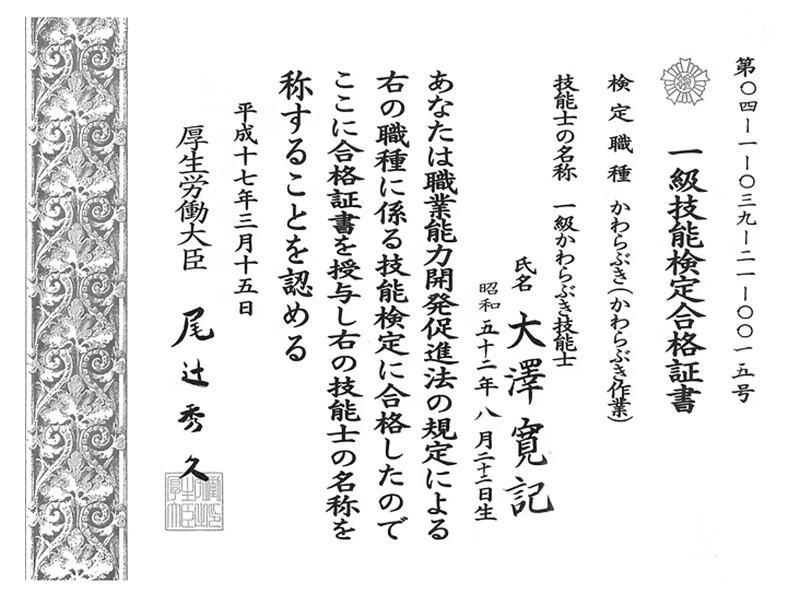 第〇四ー一ー〇三九ー二一ー〇〇一五号
一級技能検定合格証書
検定職種 かわらぶき(かわらぶき作業)
技能士の名称 一級かわらぶき技能士
氏名 大澤寛記
昭和五十二年八月二十二日生
あなたは職業能力開発促進法の規定による
右の職種に係る技能検定に合格したので
ここに合格証書を授与し右の技能士の名称を
称することを認める
平成十七年三月十五日
厚生労働大臣 尾辻秀久